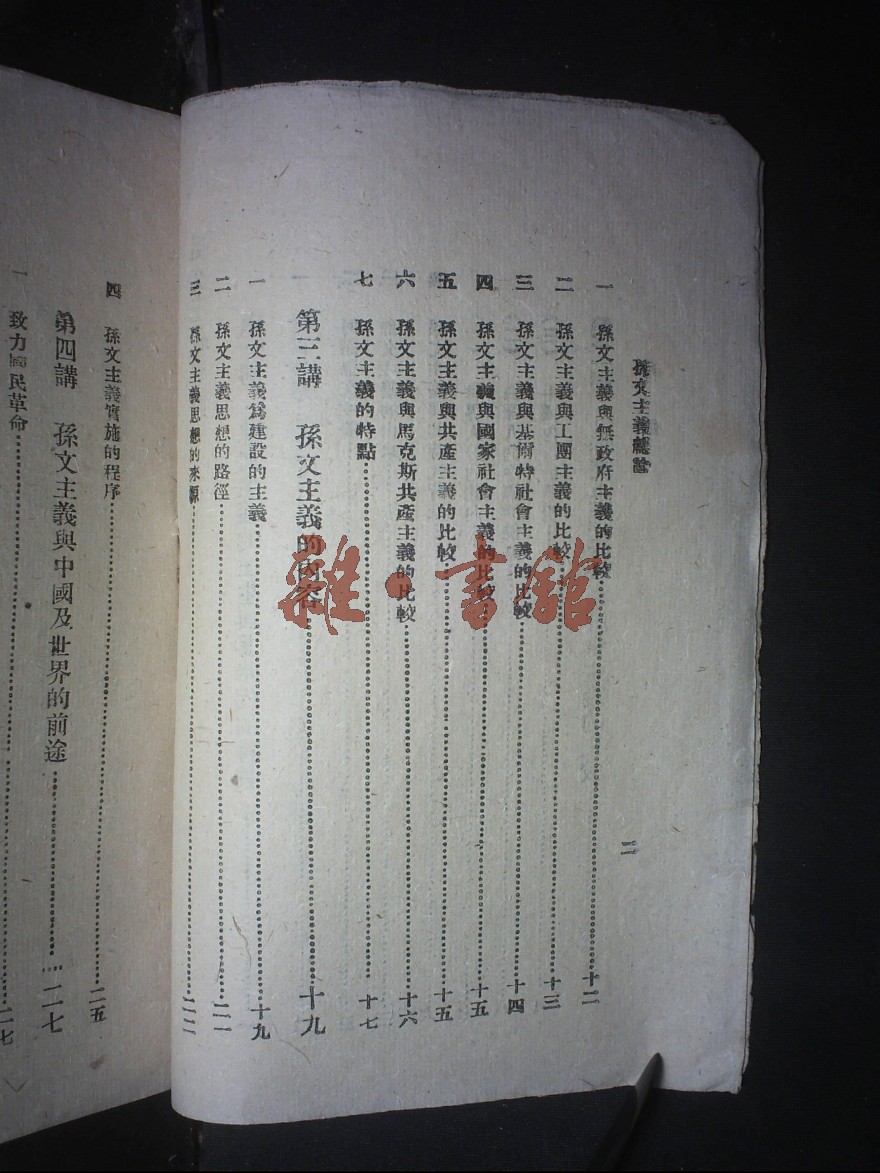 孫文主義總論
二
一　孫文主義與無政府主義的比較……十二
二　孫文主義與工團主義的比較……十三
三　孫文主義與基爾特社會主義的比較……十四
四　孫文主義與國家社會主義的比較……十五
五　孫文主義與共產主義的比較……十五
六　孫文主義與馬克斯共產主義的比較……十六
七　孫文主義的特點……十七
第三講　孫文主義的內容……十九
一　孫文主義爲建設的主義……十九
二　孫文主義思想的路徑……二一
三　孫文主義思想的來源……二二
四　孫文主義實施的程序……二五
第四講　孫文主義與中國及世界的前途……二七
一　致力國民革命……二七
雜·書館